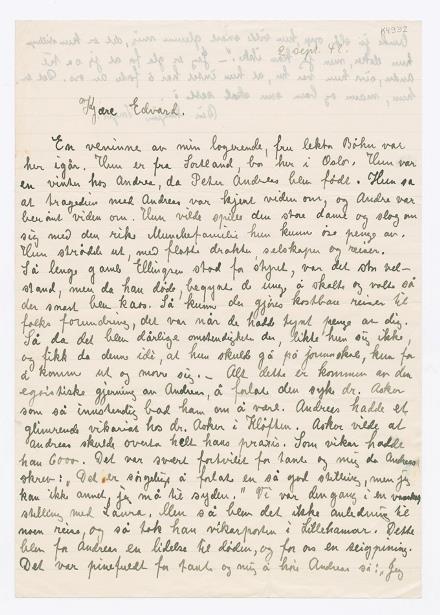 K4932
9 sept. 42.
Kjære Edvard.
En veninne av min logerende, fru lektor Bøhn var
her igår. Hun er fra Sortland, bor her i Oslo. Hun var
en vinter hos Andrea, da Peter Andreas blev født. Hun sa
at tragedien med Andreas var kjent viden om, og Andre var
berømt viden om. Hun vilde spille den store dame og slog om
sig med den rike Munchefamilie hun kunn øse penge av.
Hun strødde ut, med flotte drakter selskaper og reiser.
Så lenge gamle Ellingsen stod for styret, var det stor vel-
stand, men da han døde begynte de unge å skalte og volte så
der snart blev kaos. Så kunde der gjøres kostbare reiser til
folks forundring, det var når de hadde tynt penge av dig.
Så da det blev dårlige omstendigheter der, likte hun sig ikke,
og fikk da denne idé, at hun skulde gå på jormorskole, kun for
å komme ut og more sig. — Alt dette er kommen av den
egoistiske gjerning av Andreas, å forlate den syke dr. Asker
som så innstendig bad ham om å være. Andreas hadde et
glimrende vikariat hos dr. Asker i Kløften. Asker vilde at
Andreas skulde overta hele hans praxis. Som vikar hadde
han 6000. Det var svært fortvilet for tante og mig da Andreas
skrev: „Det er sørgelig å forlate en så god stilling, men jeg
kan ikke annet, jeg må til syden." Vi var den gang i en vanskelig
stilling med Laura. Men så blev det ikke anledning til
noen reise, og så tok han vikarposten i Lillehamar. Dette
blev for Andreas en lidelse til døden, og for os en seigpinning.
Det var pinefuldt for tante og mig å høre Andreas si: „Jeg